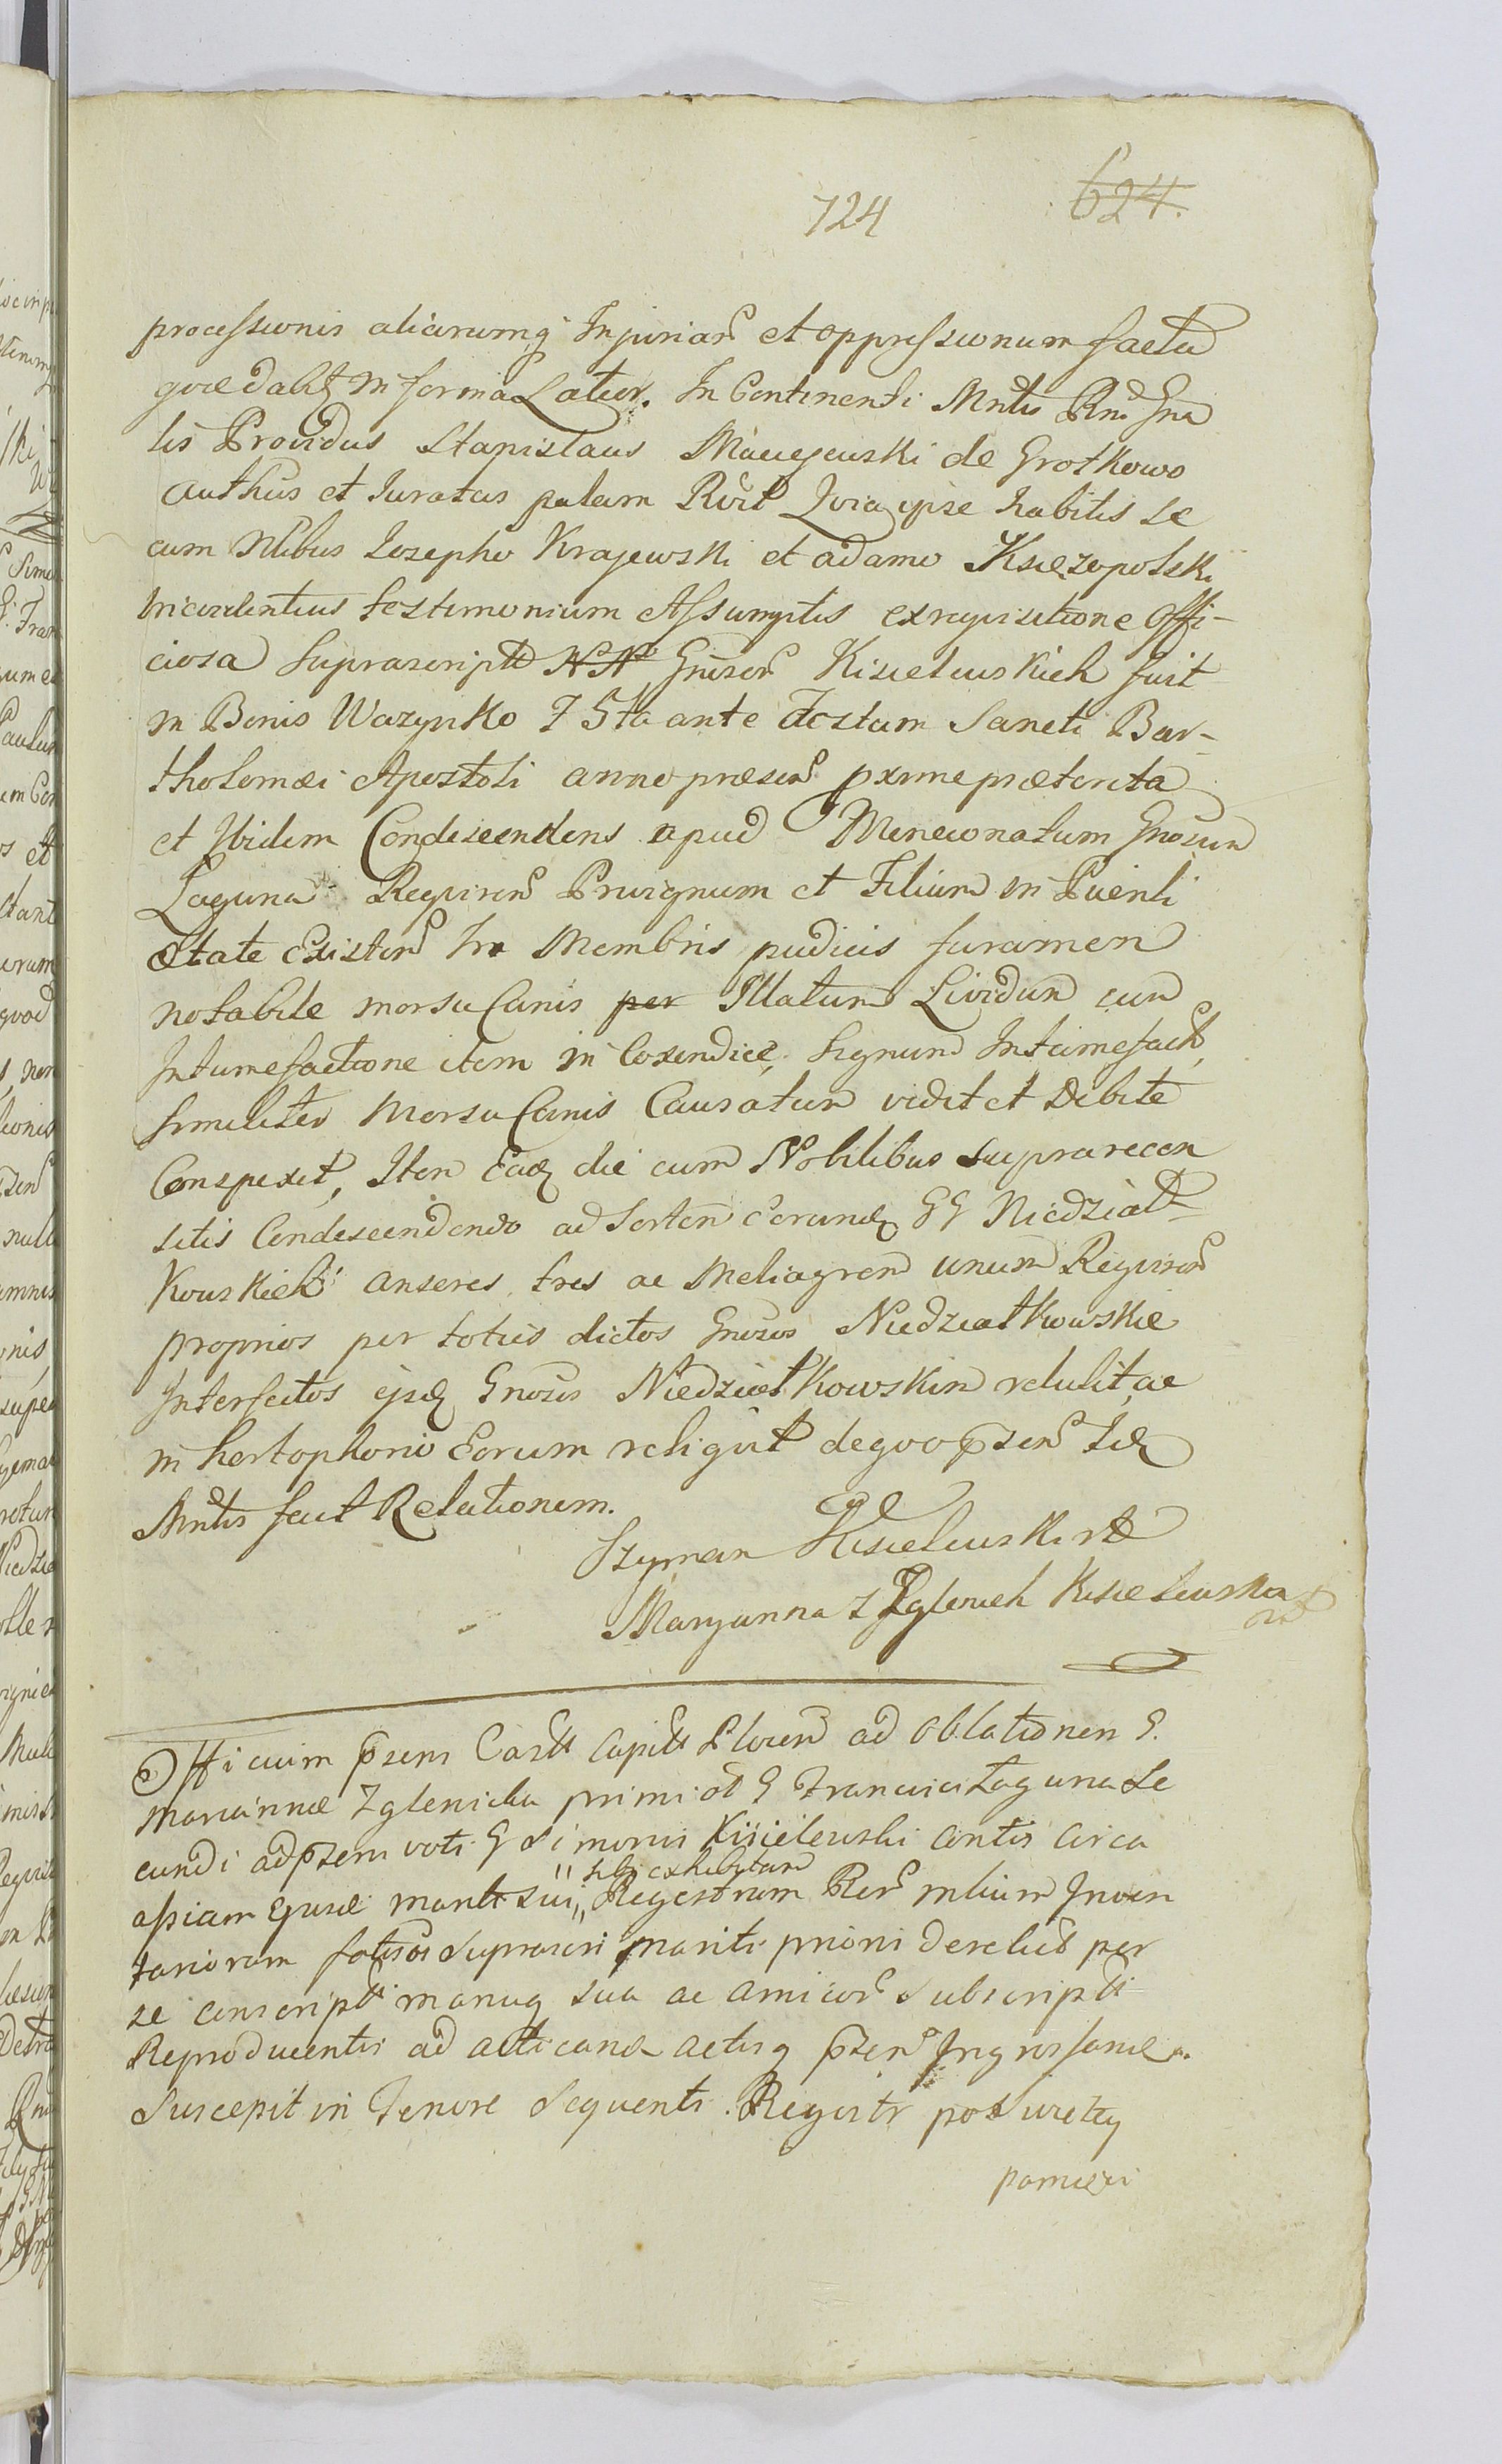 724 624.
processionis aliarumq Injuriar et oppressionum facta
quae dabt in forma Latior. In Continenti Mntis Rni Gna
lis Providus Stanislaus Maciejewski de Grotkowo
Authus et Iuratus palam Rcit Quia ipse habitis se
cum Nlibus Iosepho Krajewski et adamo Księzopolski
in evidentius testimonium Assumptis ex requisitione Offi-
ciosa suprascript NN Gnosor Kisielewskich fuit
in Bonis Wazynko 7 5ta ante Festum Sancti Bar-
tholomæi Apostoli anno præsen pxime præterita
et Ibidem Condescendens apud Mencionatum Gnosum
Laguna Requiren Privignum et Filium in Puerili
Ætate Existen In Membris pudicis foramen
notabile morsu Canis per Illatum Lividum cum
Intumefactione item in Coxendice Signum Intumefact
similiter Morsu Canis Causatum vidit et Debite
Conspexit, Item Eadq die cum Nobilibus suprarecen
sitis Condescendendo ad sortem Eorundq GG Niedział-
kowskich anseres tres ac Meliagrem unum Requiren
proprios per toties dictos Gnosos Niedziałkowskie
Interfectos ijsdq Gnosis Niedziałkowskim retulit, ac
in hortophorio Eorum reliquit de quo pzen Idq
Mntis fecit Relationem.
Szymon Kisielewski
Maryanna z Zglenich Kisielewska
Officium pzens Castr Capit Plocen ad Oblationem G.
Mariannæ Zglenicka primi ol G Francisci Laguna Se
cundi ad pzens voti G Simonis Kisielewski Contis Circa
assiam ejusd marit sui " sibi exhibitam " Regestrum Rer mlium Inven
tariorum fatisor suprascri mariti prioris derelict per
se conscript manuq sua ac amicor subscript
Reproducentis ad acticand actisq pzen Ingrossand
Suscepit in Tenore Sequenti. Regestr pos więtey
pamięci